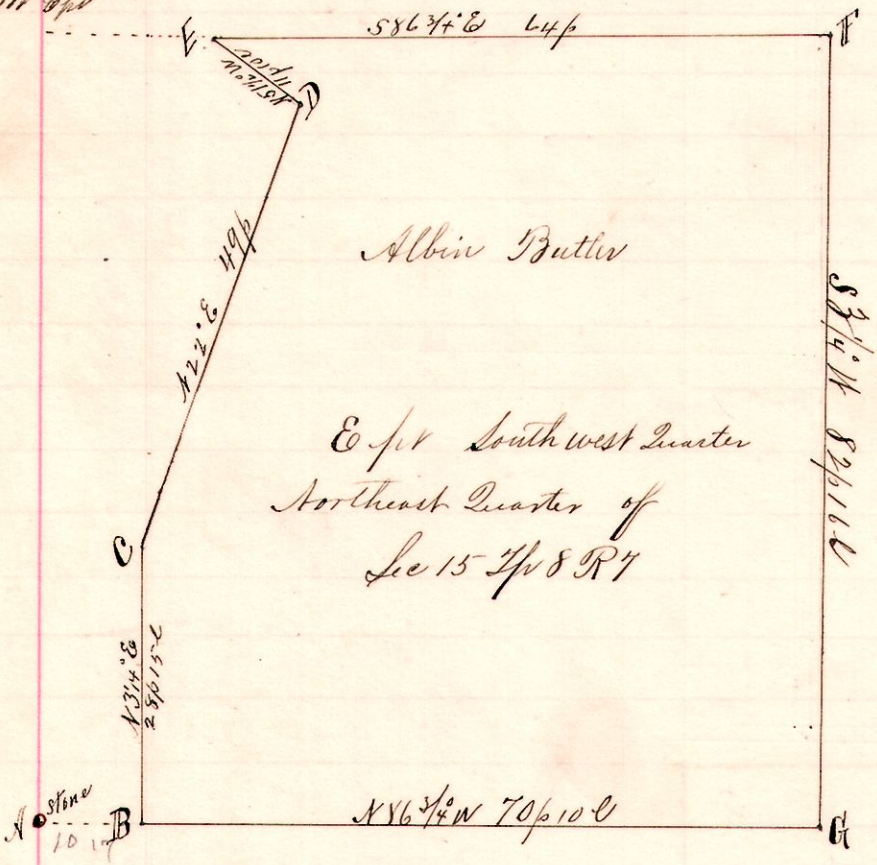 E
S 86 3/4° E 64p
F
N 51 1/2° W
11p 10l
D
N 22° E 49p
Albin Butler
S 3/4° W 82p 16l
E pt Southwest Quarter
Northeast Quarter of
Sec 15 Tp 8 R 7
C
N 3 1/4° E
28p 15l
A stone
10
B
N 86 3/4° W 70p 10l
G